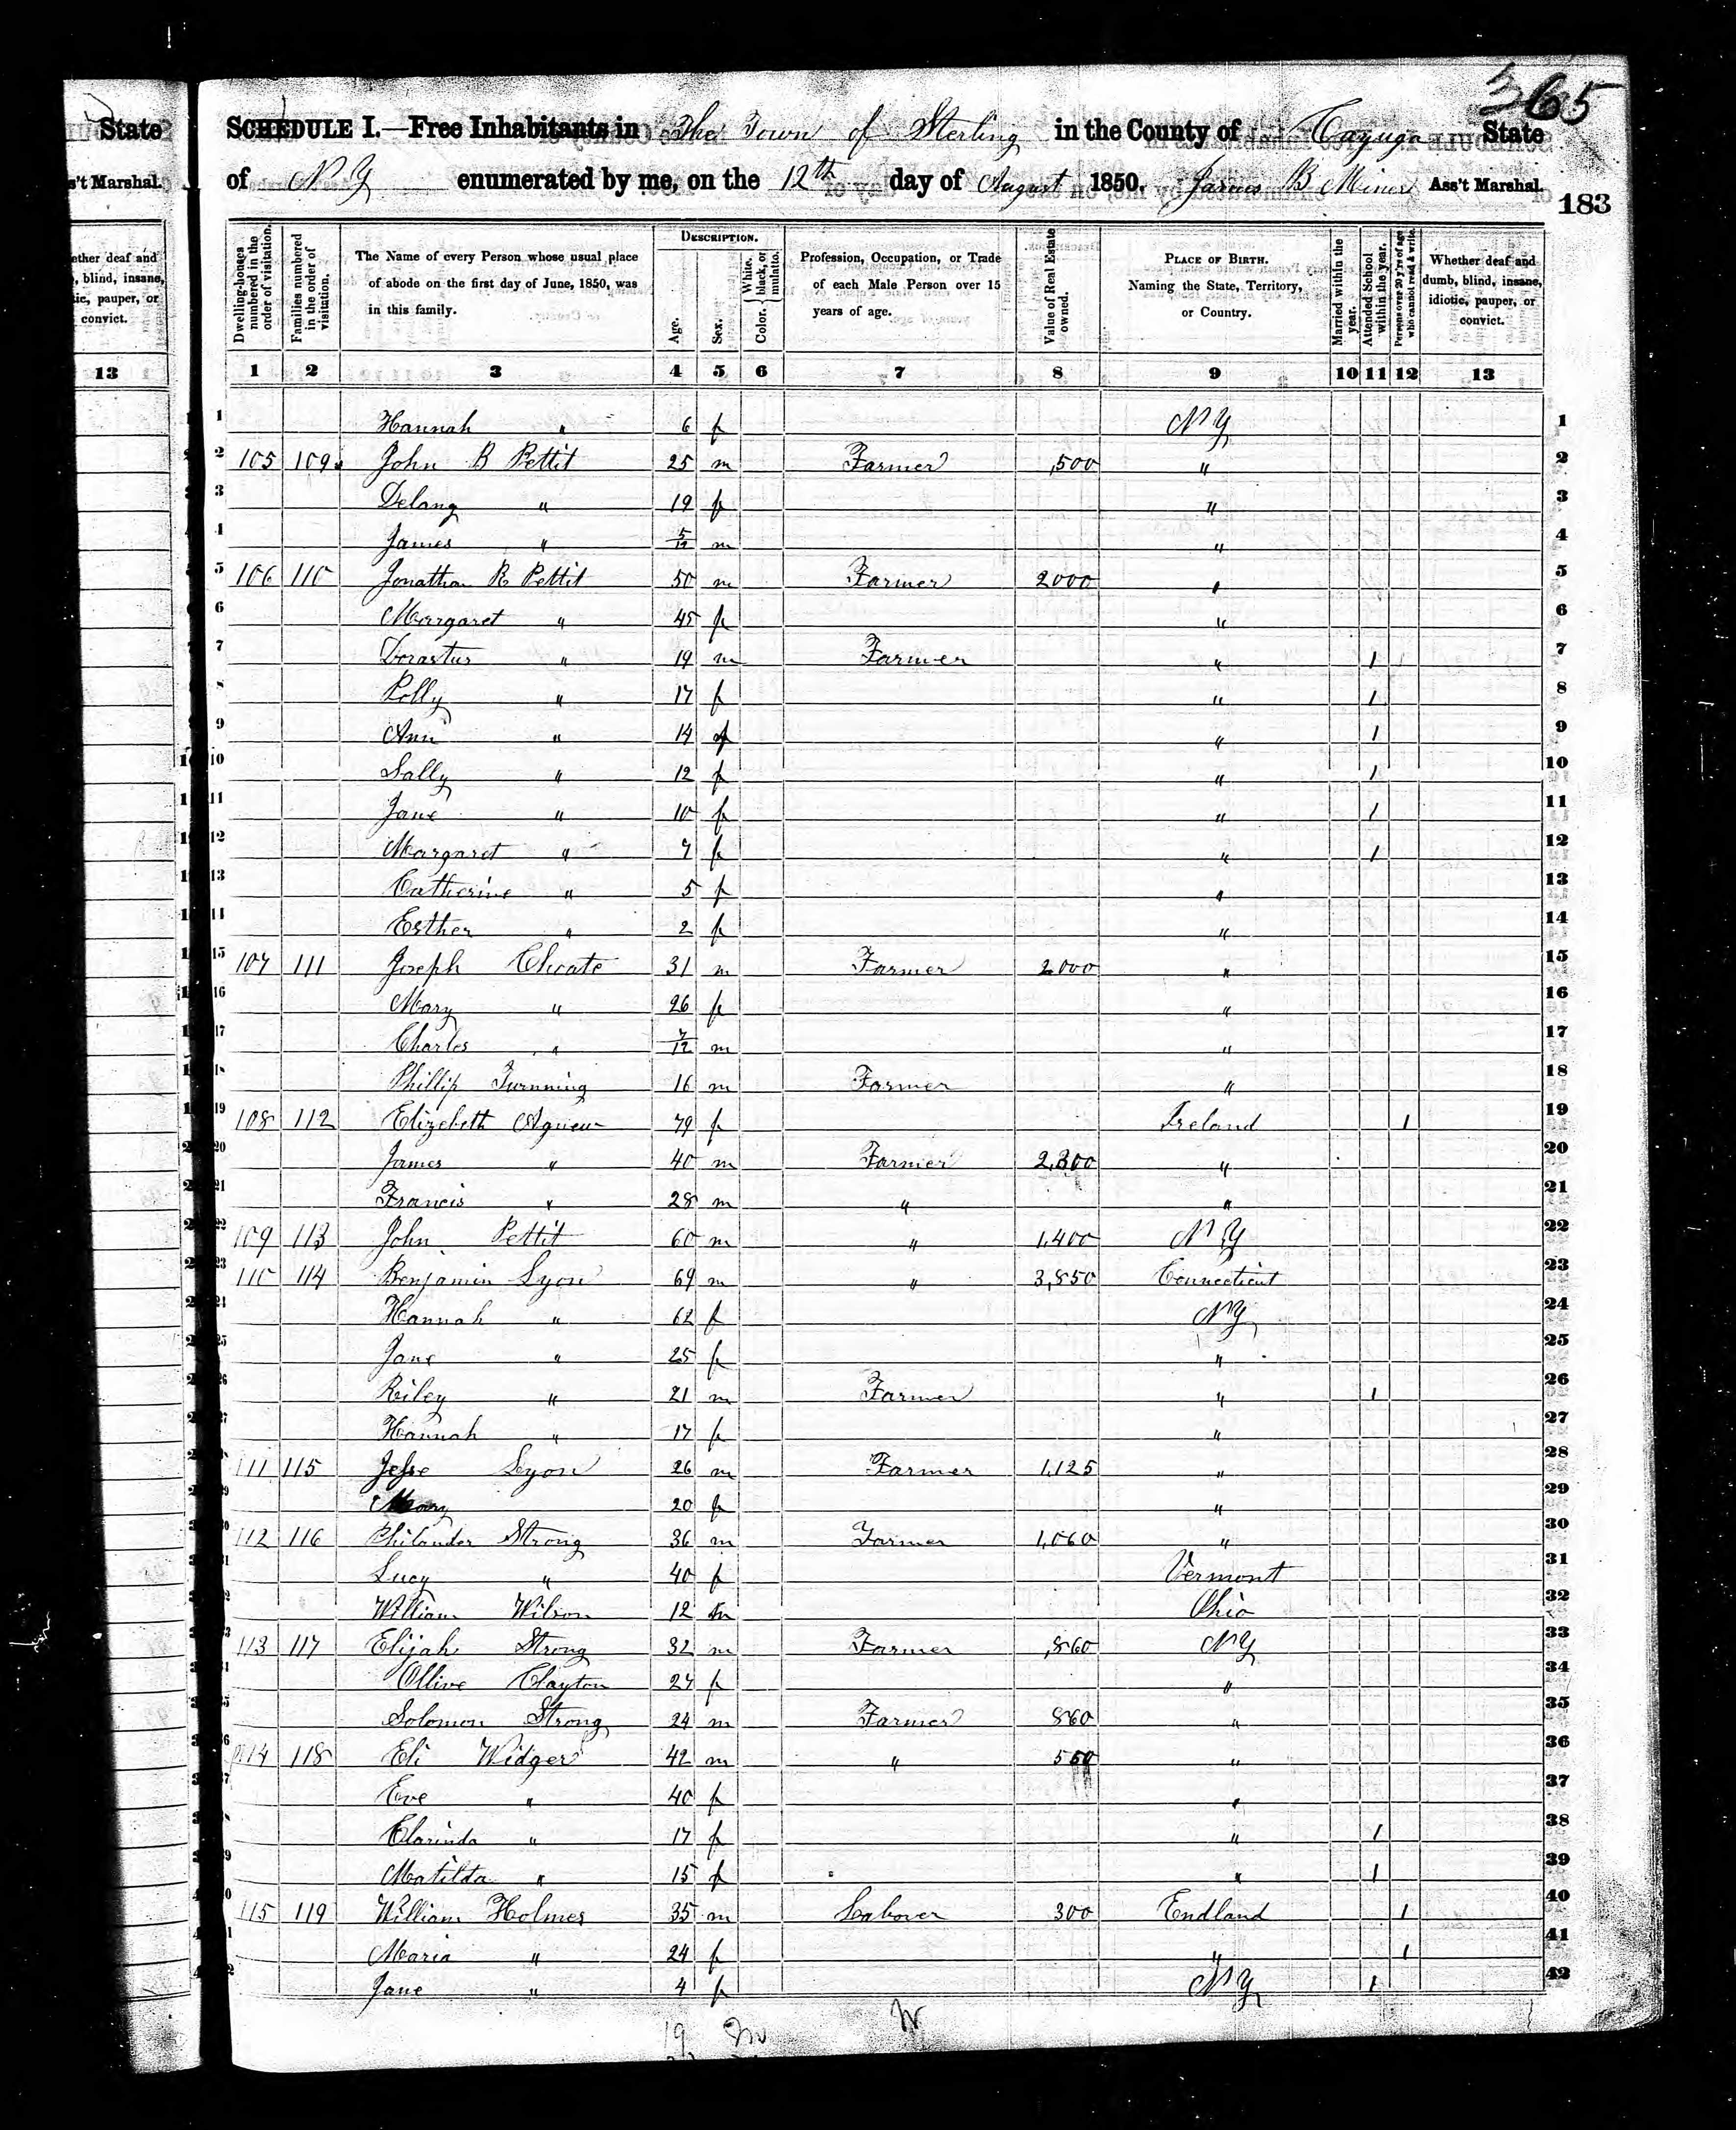 365
State SCHEDULE I.—Free Inhabitants in The Town of Sterling in the County of Cayuga State
s't Marshal. of N Y enumerated by me, on the 12th day of August 1850. James B Miner Ass't Marshal.
183
ether deaf and
, blind, insane,
tic, pauper, or
convict.
13
Dwelling-houses numbered in the order of visitation.
Families numbered in the order of visitation.
The Name of every Person whose usual place of abode on the first day of June, 1850, was in this family.
DESCRIPTION.
Age.
Sex.
Color. { White, black, or mulatto.
Profession, Occupation, or Trade of each Male Person over 15 years of age.
Value of Real Estate owned.
PLACE OF BIRTH. Naming the State, Territory, or Country.
Married within the year.
Attended School within the year.
Persons over 20 y'rs of age who cannot read & write.
Whether deaf and dumb, blind, insane, idiotic, pauper, or convict.
1 2 3 4 5 6 7 8 9 10 11 12 13
1 Hannah " 6 f N Y 1
2 105 109 John B Pettit 25 m Farmer ,500 " 2
3 Delany " 19 f " 3
4 James " 5/12 m " 4
5 106 110 Jonathan R Pettit 50 m Farmer 2000 " 5
6 Margaret " 45 f " 6
7 Dorastus " 19 m Farmer " 1 7
8 Polly " 17 f " 1 8
9 Ann " 14 f " 1 9
10 Sally " 12 f " 1 10
11 Jane " 10 f " 1 11
12 Margaret " 7 f " 1 12
13 Catherine " 5 f " 13
14 Esther " 2 f " 14
15 107 111 Joseph Choate 31 m Farmer 2000 " 15
16 Mary " 26 f " 16
17 Charles " 7/12 m " 17
18 Phillip Turnning 16 m Farmer " 18
19 108 112 Elizebeth Agnew 79 f Ireland 1 19
20 James " 40 m Farmer 2,300 " 20
21 Francis " 28 m " " 21
22 109 113 John Pettit 60 m " 1,400 N Y 22
23 110 114 Benjamin Lyon 69 m " 3,850 Connecticut 23
24 Hannah " 62 f N Y 24
25 Jane " 25 f " 25
26 Riley " 21 m Farmer " 1 26
27 Hannah " 17 f " 27
28 111 115 Jesse Lyon 26 m Farmer 1,125 " 28
29 Mary 20 f " 29
30 112 116 Philander Strong 36 m Farmer 1,060 " 30
31 Lucy " 40 f Vermont 31
32 William Wilson 12 m Ohio 32
33 113 117 Elijah Strong 32 m Farmer ,860 N Y 33
34 Ollive Clayton 27 f " 34
35 Solomon Strong 24 m Farmer 860 " 35
36 114 118 Eli Widger 42 m " 560 " 36
37 Eve " 40 f " 37
38 Clarinda " 17 f " 1 38
39 Matilda " 15 f " 1 39
40 115 119 William Holmes 35 m Labover 300 Endland 1 40
41 Maria " 24 f " 1 41
42 Jane " 4 f N Y 1 42
19